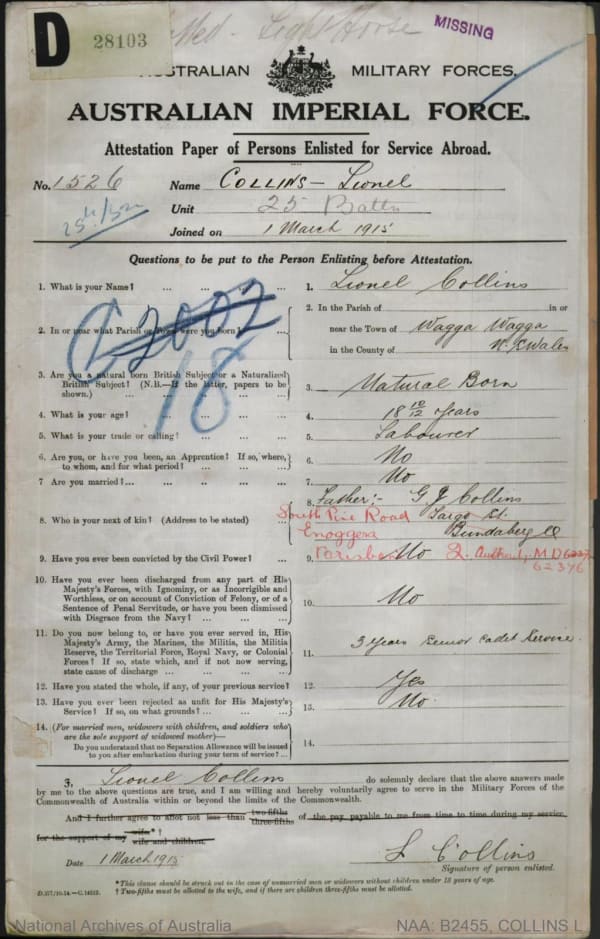 D
28103
Light Horse
MISSING
AUSTRALIAN MILITARY FORCES.
AUSTRALIAN IMPERIAL FORCE.
Attestation Paper of Persons Enlisted for Service Abroad.
No. 1526 Name COLLINS - Lionel
25th/3rd
Unit 25 Battn
Joined on 1 March 1915
Questions to be put to the Person Enlisting before Attestation.
1. What is your Name? ... ... ... ... 1. Lionel Collins
2. In or near what Parish or Town were you born? ... 2. In the Parish of in or
near the Town of Wagga Wagga
in the County of N. S. Wales
18
3. Are you a natural born British Subject or a Naturalized
British Subject? (N.B.—If the latter, papers to be
shown.) ... ... ... ... 3. Natural Born
4. What is your age? ... ... ... ... 4. 18 10/12 years
5. What is your trade or calling? ... ... ... 5. Labourer
6. Are you, or have you been, an Apprentice? If so, where,
to whom, and for what period? ... ... ... 6. No
7 Are you married?... ... ... ... 7. No
8. Who is your next of kin? (Address to be stated) ... 8. Father:- G J Collins
Targo St.
Bundaberg Q
South Pine Road
Enoggera
Brisbane
9. Have you ever been convicted by the Civil Power? ... 9. No
Q. Authority, M.D.
62376
10. Have you ever been discharged from any part of His
Majesty's Forces, with Ignominy, or as Incorrigible and
Worthless, or on account of Conviction of Felony, or of a
Sentence of Penal Servitude, or have you been dismissed
with Disgrace from the Navy? ... ... ... 10. No
11. Do you now belong to, or have you ever served in, His
Majesty's Army, the Marines, the Militia, the Militia
Reserve, the Territorial Force, Royal Navy, or Colonial
Forces? If so, state which, and if not now serving,
state cause of discharge ... ... ... 11. 3 years Senior Cadet Service
12. Have you stated the whole, if any, of your previous service? 12. Yes
13. Have you ever been rejected as unfit for His Majesty's
Service? If so, on what grounds? ... ... ... 13. No
14. (For married men, widowers with children, and soldiers who
are the sole support of widowed mother)—
Do you understand that no Separation Allowance will be issued
to you after embarkation during your term of service? ... 14.
I, Lionel Collins do solemnly declare that the above answers made
by me to the above questions are true, and I am willing and hereby voluntarily agree to serve in the Military Forces of the
Commonwealth of Australia within or beyond the limits of the Commonwealth.
And I further agree to allot not less than two-fifths three-fifths of the pay payable to me from time to time during my service
for the support of my wife *† wife and children.
Date 1 March 1915
L Collins
Signature of person enlisted.
* This clause should be struck out in the case of unmarried men or widowers without children under 18 years of age.
† Two-fifths must be allotted to the wife, and if there are children three-fifths must be allotted.
D.377/10.14.—C.14512.
National Archives of Australia NAA: B2455, COLLINS L